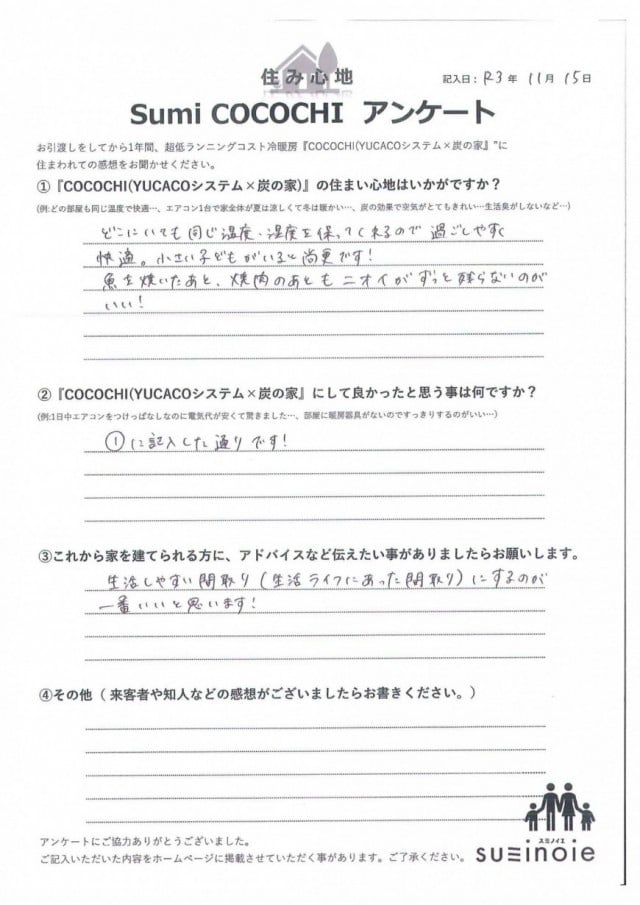 住み心地
記入日：R3年 11月 15日
Sumi COCOCHI アンケート
お引渡しをしてから1年間、超低ランニングコスト冷暖房『COCOCHI(YUCACOシステム×炭の家』"に
住まわれての感想をお聞かせください。
①『COCOCHI(YUCACOシステム×炭の家)』の住まい心地はいかがですか？
(例:どの部屋も同じ温度で快適…、エアコン1台で家全体が夏は涼しくて冬は暖かい…、炭の効果で空気がとてもきれい…生活臭がしないなど…)
どこにいても同じ温度・湿度を保ってくれるので過ごしやすく
快適。小さい子どもがいると尚更です！
魚を焼いたあと、焼肉のあともニオイがずっと残らないのが
いい！
②『COCOCHI(YUCACOシステム×炭の家』にして良かったと思う事は何ですか？
(例:1日中エアコンをつけっぱなしなのに電気代が安くて驚きました…、部屋に暖房器具がないのですっきりするのがいい…)
①に記入した通りです！
③これから家を建てられる方に、アドバイスなど伝えたい事がありましたらお願いします。
生活しやすい間取り(生活ライフにあった間取り)にするのが
一番いいと思います！
④その他（来客者や知人などの感想がございましたらお書きください。）
アンケートにご協力ありがとうございました。
ご記入いただいた内容をホームページに掲載させていただく事があります。ご了承ください。
スミノイエ
suminoie